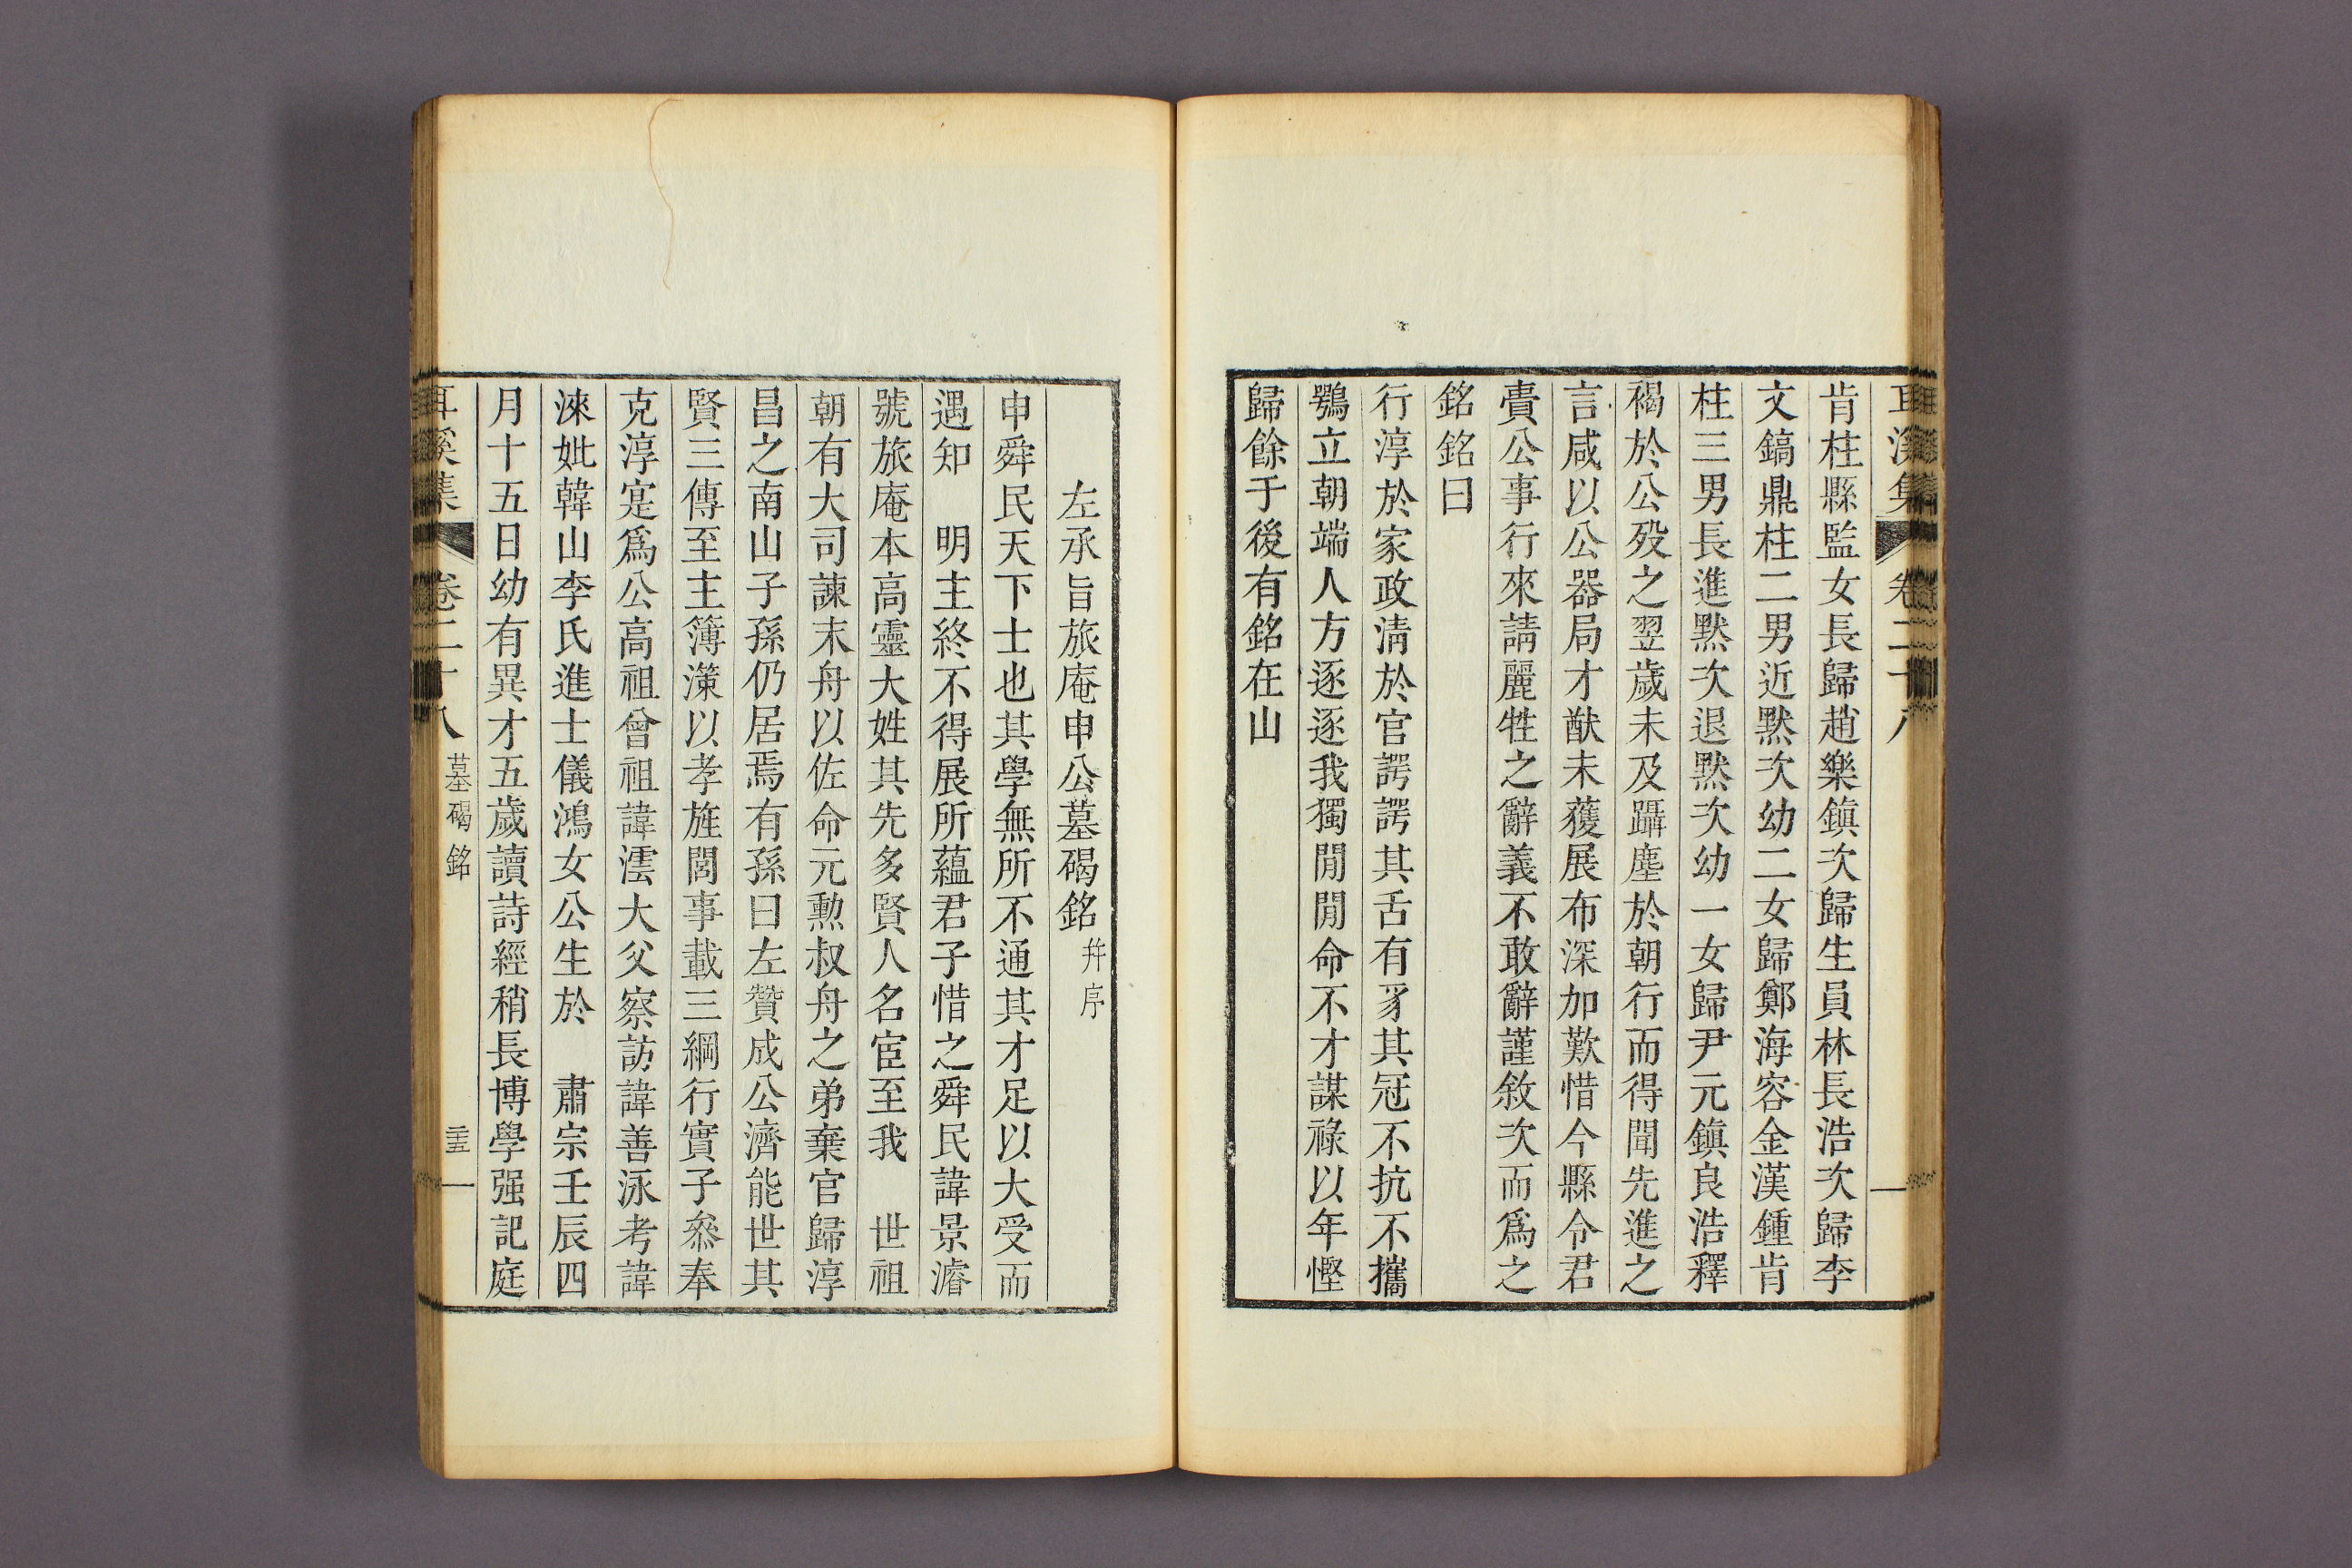 耳溪集 卷二十八
肯柱縣監女長歸趙樂鎮次歸生員林長浩次歸李
文鎬鼎柱二男近默次幼二女歸鄭海容金漢鍾肯
柱三男長進默次退默次幼一女歸尹元鎮良浩釋
褐於公歿之翌歲未及躡塵於朝行而得聞先進之
言咸以公器局才猷未蒦展布深加歎惜今縣令君
賷公事行來請麗牲之辭義不敢辭謹敘次而爲之
銘銘曰
行淳於家政淸於官諤諤其舌有豸其冠不抗不攜
鶚立朝端人方逐逐我獨閒閒命不才謀祿以年慳
歸餘于後有銘在山
左承旨旅庵申公墓碣銘 幷序
申舜民天下士也其學無所不通其才足以大受而
遇知 明主終不得展所蘊君子惜之舜民諱景濬
號旅庵本高靈大姓其先多賢人名宦至我 世祖
朝有大司諫末舟以佐命元勲叔舟之弟棄官歸淳
昌之南山子孫仍居焉有孫曰左贊成公濟能世其
賢三傳至主簿㵛以孝旌閭事載三綱行實子叅奉
克淳寔爲公高祖曾祖諱澐大父察訪諱善泳考諱
淶妣韓山李氏進士儀鴻女公生於 肅宗壬辰四
月十五日幼有異才五歲讀詩經稍長博學强記庭
耳溪集 卷二十八 墓碣銘